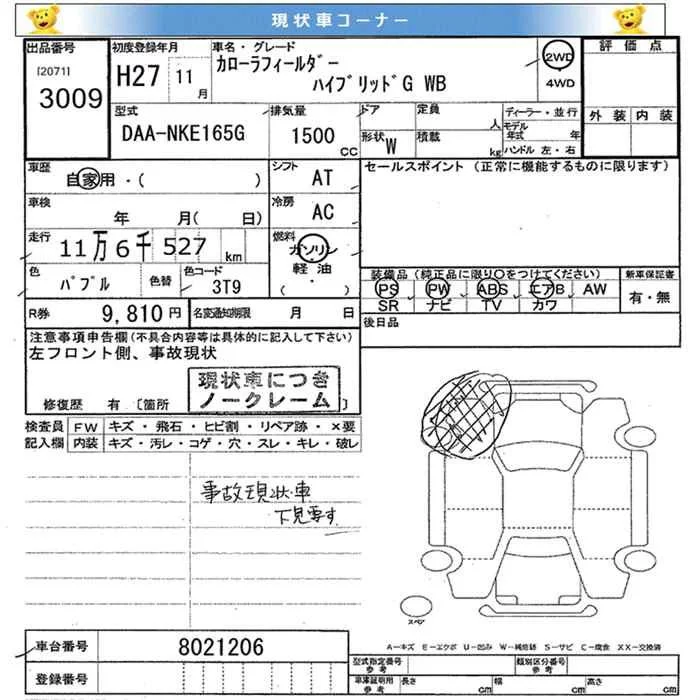 現状車コーナー
出品番号
[2071]
3009
初度登録年月
H27 11 月
車名・グレード
カローラフィールダー
ハイブリッドG WB
2WD
4WD
評価点
外装 内装
型式
DAA-NKE165G
排気量
1500 CC
ドア
定員
人
形状 W
積載
kg
ディーラー・並行
モデル年式 年
ハンドル 左・右
車歴
自家用・( )
シフト
AT
セールスポイント (正常に機能するものに限ります)
車検
年 月( 日)
冷房
AC
走行
11万6千527 km
燃料
ガソリン
軽油
( ・ )
色
パプル
色替
色コード
3T9
装備品(純正品に限り○をつけてください)
PS PW ABS エアB AW
SR ナビ TV カワ
新車保証書
有・無
R券
9,810円
名変通知期限 月 日
後日品
注意事項申告欄(不具合内容等は具体的に記入して下さい)
左フロント側、事故現状
現状車につき
ノークレーム
修復歴 有 〔箇所 〕
検査員
記入欄
FW キズ・飛石・ヒビ割・リペア跡・×要
内装 キズ・汚レ・コゲ・穴・スレ・キレ・破レ
事故現状車
下見要す
スペア
A-キズ E-エクボ U-凹み W-補修跡 S-サビ C-腐食 XX-交換済
車台番号
8021206
登録番号
型式指定番号
参考
類別区分番号
参考
車庫証明用
参考
長さ cm 幅 cm 高さ cm